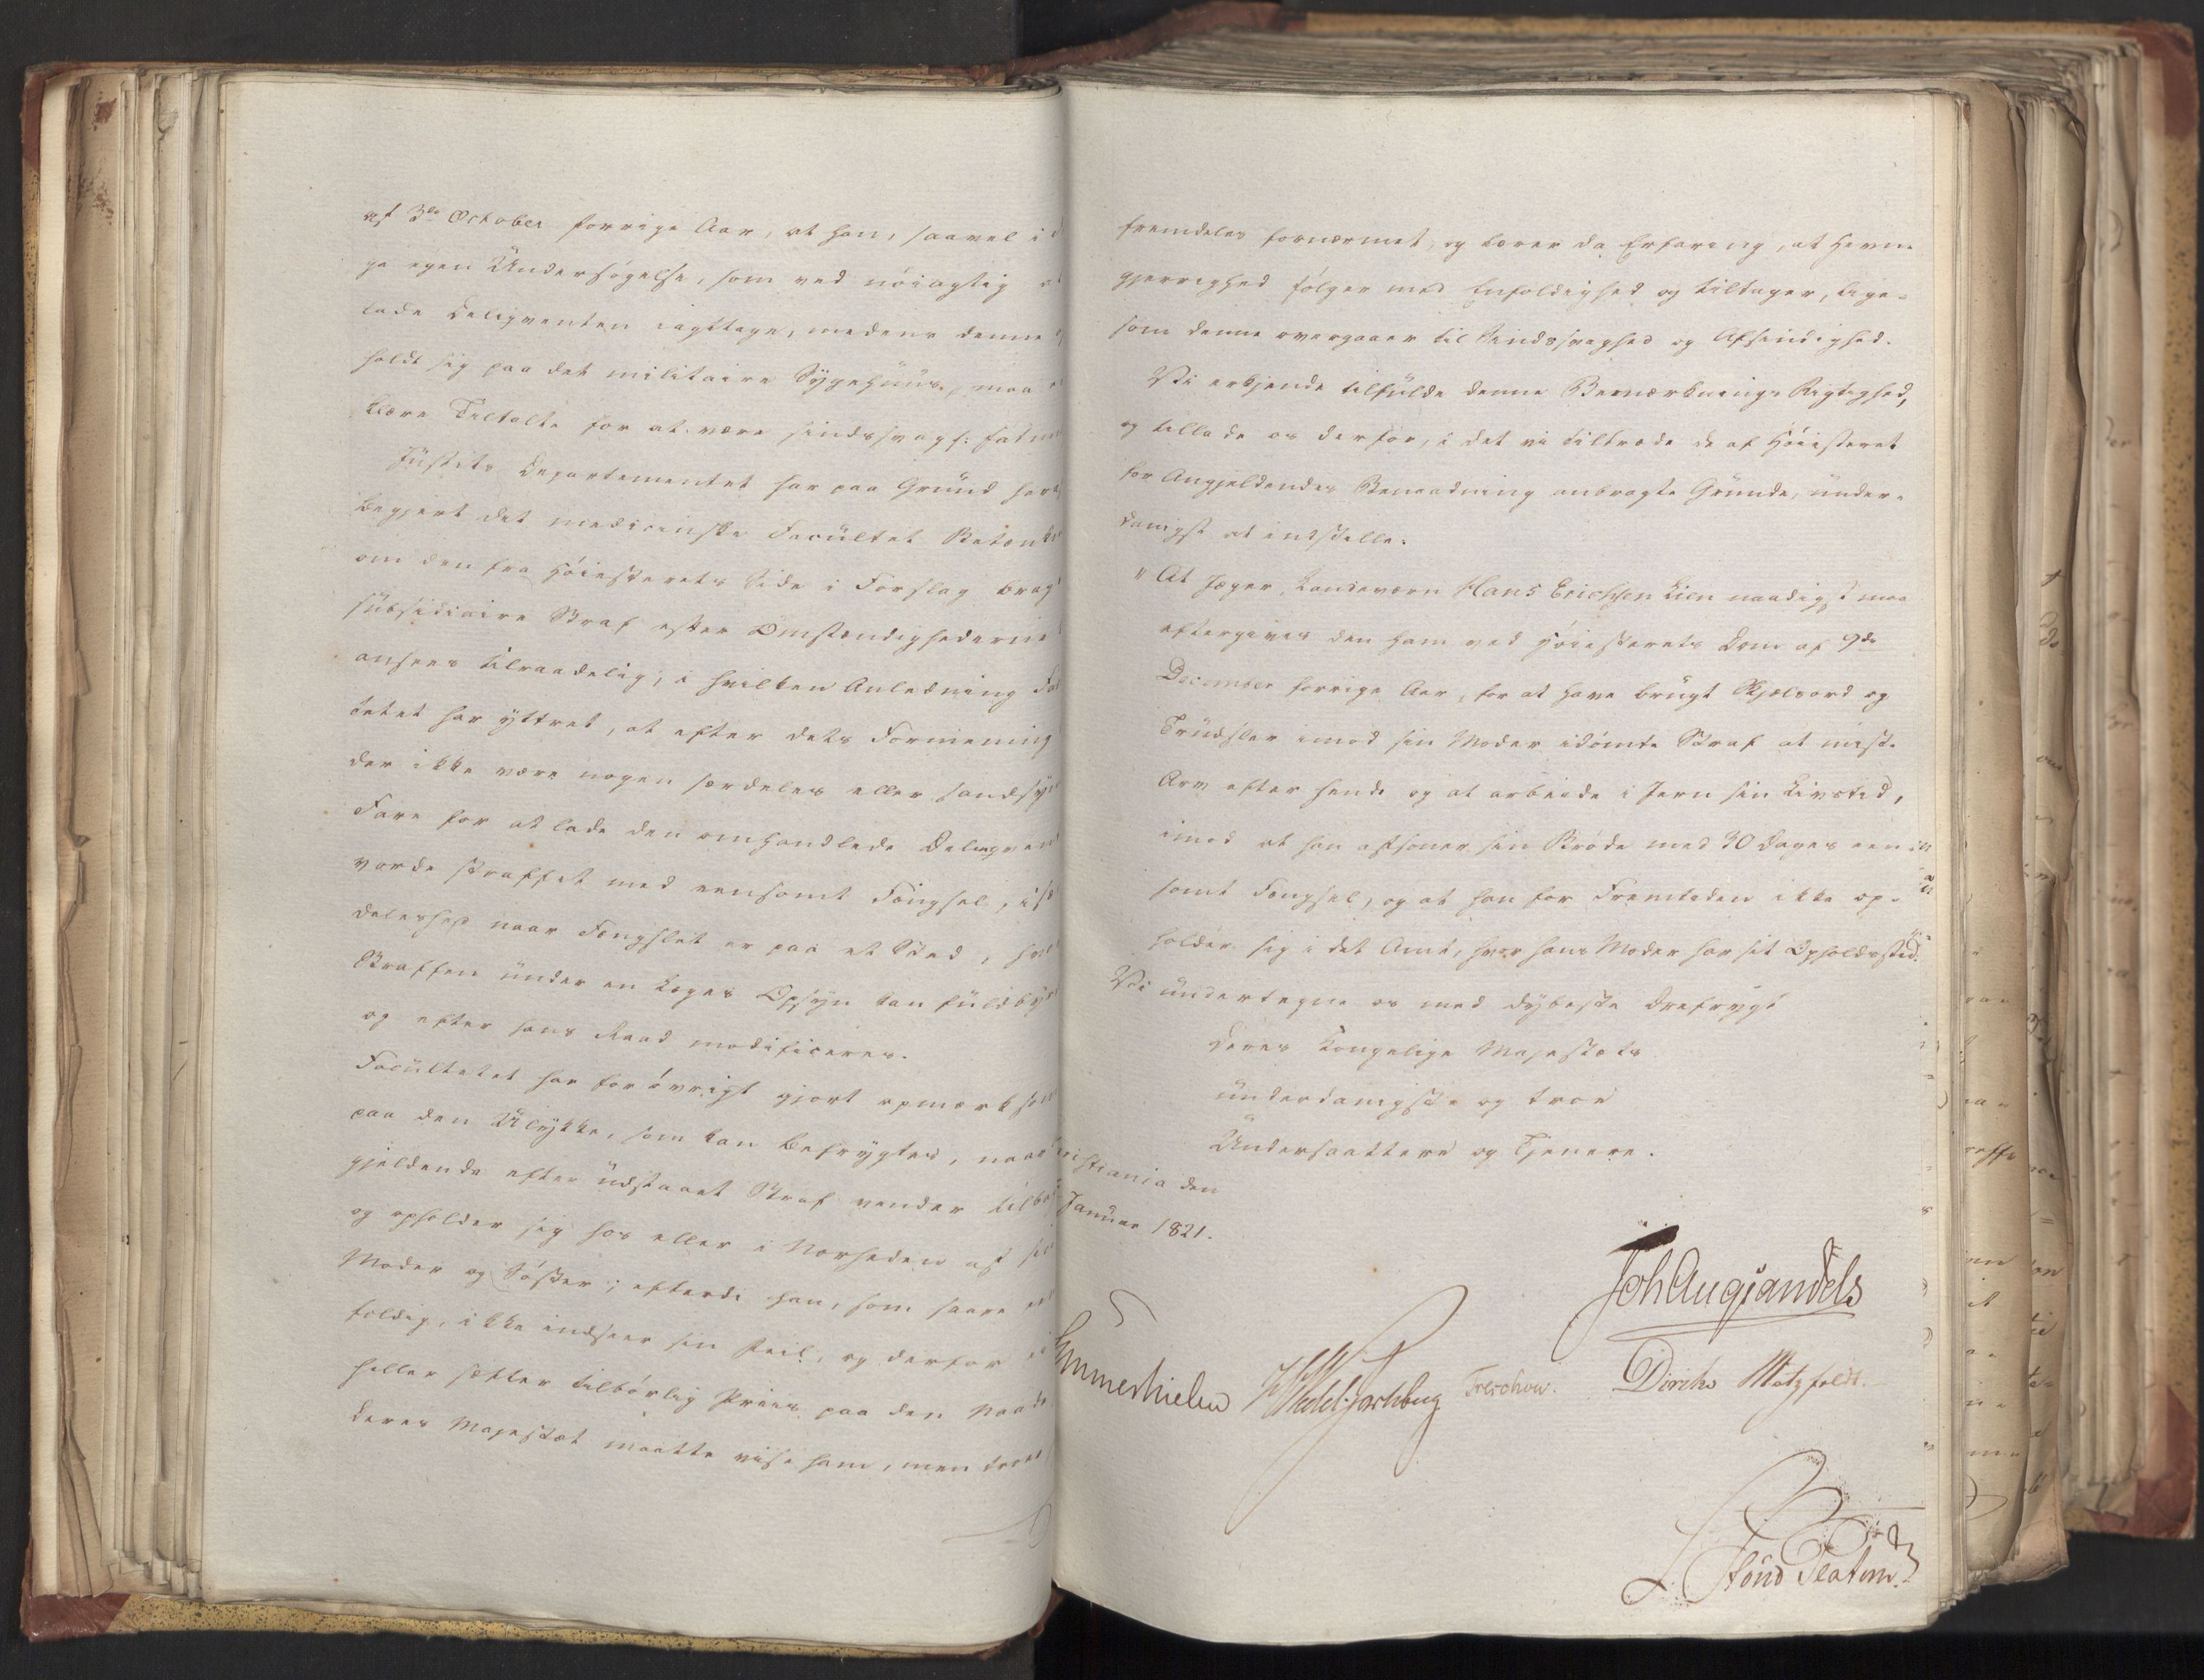 af 3die October forrige Aar, at han, saavel i
ge egen Undersøgelse, som ved nøiagtig
lade Deliqventen iagttage, medens denne
holdt sig paa det militaire Sygehuus, maa
klære Tiltalte for at være sindssvag f: fatu
Justits Departementet har paa Grund her
begjert det medicinske Facultet Betænk
om den fra Høiesterets Side i Forslag brag
subsidiaire Straf efter Omstændighederne
ansees tilraadelig; i hvilken Anledning Fa
ltetet har yttret, at efter dets Formening
der ikke være nogen særdeles eller sandsyn
Fare for at lade den omhandlede Deliqvent
vorde straffet med eensomt Fængsel, i
deleshed naar Fængslet er paa et Sted, hvor
Straffen under en Læges Opsyn kan fuldbyr
og efter hans Raad modificeres.
Facultetet har forøvrigt gjort opmærksom
paa den Ulykke, som kan befrygtes, naar
gjeldende efter udstaaet Straf vender tilba
og opholder sig hos eller i Nærheden af sin
Moder og Søster; efterdi han, som saare een
foldig, ikke indseer sin Feil, og derfor ei
heller sætter tilbørlig Priis paa den Naade
Deres Majestæt maatte vise ham, men troer
fremdeles fornærmet, og lærer da Erfaring, at Hevn-
gjerrighed følger med Enfoldighed og tiltager, lige-
som denne overgaaer til Sindssvaghed og Afsindighed.
Vi erkjende tilfulde denne Bemærknings Rigtighed,
og tillade os derfor, i det vi tiltræde de af Høiesteret
for Angjeldendes Benaadning anbragte Grunde, under-
danigst at indstille:
"At Jæger, Landeværn Hans Erichsen Lien naadigst maa
eftergives den ham ved Høiesterets Dom af 9de
December forrige Aar, for at have brugt Skjælsord og
Trudsler imod sin Moder idømte Straf at miste
Arv efter hende og at arbeide i Jern sin Livstid,
imod at han afsoner sin Brøde med 30 Dages een-
somt Fængsel, og at han for Fremtiden ikke op-
holder sig i det Amt, hvor hans Moder har sit Opholdssted.
Vi undertegne os med dybeste Ærefrygt
Deres Kongelige Majestæts
underdanigste og troe
Undersaattere og Tjenere.
ristiania den
Januar 1821.
Joh Aug Sandels
Sommerhielm Wedel-Jarlsberg Treschow. Diriks Motzfeldt.